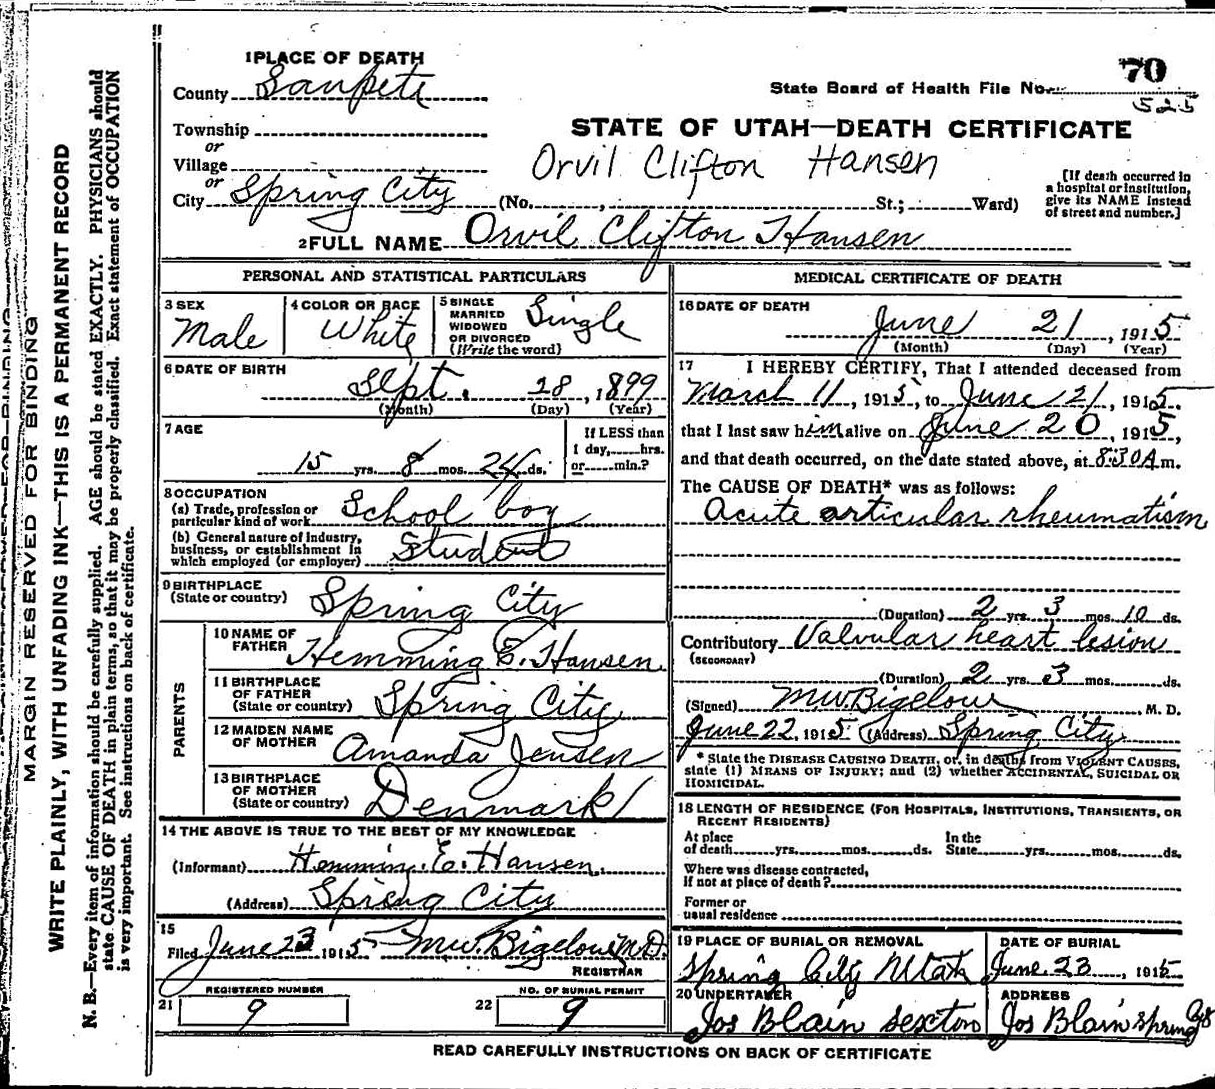 MARGIN RESERVED FOR BINDING
WRITE PLAINLY, WITH UNFADING INK—THIS IS A PERMANENT RECORD
N. B.—Every item of information should be carefully supplied. AGE should be stated EXACTLY. PHYSICIANS should
state CAUSE OF DEATH in plain terms, so that it may be properly classified. Exact statement of OCCUPATION
is very important. See instructions on back of certificate.
1 PLACE OF DEATH
County Sanpete
Township
or
Village
or
City Spring City (No. , St.; Ward)
70
State Board of Health File No.
525
STATE OF UTAH—DEATH CERTIFICATE
Orvil Clifton Hansen
[If death occurred in
a hospital or institution,
give its NAME instead
of street and number.]
2 FULL NAME Orvil Clifton Hansen
PERSONAL AND STATISTICAL PARTICULARS
3 SEX
Male
4 COLOR OR RACE
White
5 SINGLE
MARRIED
WIDOWED
OR DIVORCED
(Write the word)
Single
6 DATE OF BIRTH
Sept. 28, 1899
(Month) (Day) (Year)
7 AGE
15 yrs. 8 mos. 24 ds.
If LESS than
1 day, hrs.
or min.?
8 OCCUPATION
(a) Trade, profession or
particular kind of work School boy
(b) General nature of industry,
business, or establishment in
which employed (or employer) Student
9 BIRTHPLACE
(State or country) Spring City
PARENTS
10 NAME OF
FATHER Hemming E. Hansen
11 BIRTHPLACE
OF FATHER
(State or country) Spring City
12 MAIDEN NAME
OF MOTHER Amanda Jensen
13 BIRTHPLACE
OF MOTHER
(State or country) Denmark
14 THE ABOVE IS TRUE TO THE BEST OF MY KNOWLEDGE
(Informant) Hemming E. Hansen
(Address) Spring City
15
Filed June 23 1915 M.W. Bigelow M.D.
REGISTRAR
21 REGISTERED NUMBER
9
22 NO. OF BURIAL PERMIT
9
MEDICAL CERTIFICATE OF DEATH
16 DATE OF DEATH
June 21, 1915
(Month) (Day) (Year)
17 I HEREBY CERTIFY, That I attended deceased from
March 11, 1915, to June 21, 1915.
that I last saw him alive on June 20, 1915,
and that death occurred, on the date stated above, at 8:30 A m.
The CAUSE OF DEATH* was as follows:
Acute articular rheumatism
(Duration) 2 yrs. 3 mos. 10 ds.
Contributory Valvular heart lesion
(SECONDARY)
(Duration) 2 yrs. 3 mos. ds.
(Signed) M.W. Bigelow, M. D.
June 22, 1915. (Address) Spring City
* State the DISEASE CAUSING DEATH, or, in deaths from VIOLENT CAUSES,
state (1) MEANS OF INJURY; and (2) whether ACCIDENTAL, SUICIDAL OR
HOMICIDAL.
18 LENGTH OF RESIDENCE (FOR HOSPITALS, INSTITUTIONS, TRANSIENTS, OR
RECENT RESIDENTS)
At place
of death yrs. mos. ds.
In the
State yrs. mos. ds.
Where was disease contracted,
if not at place of death?
Former or
usual residence
19 PLACE OF BURIAL OR REMOVAL
Spring City Utah
DATE OF BURIAL
June 23, 1915
20 UNDERTAKER
Jos Blain sexton
ADDRESS
Jos Blain Spring
READ CAREFULLY INSTRUCTIONS ON BACK OF CERTIFICATE